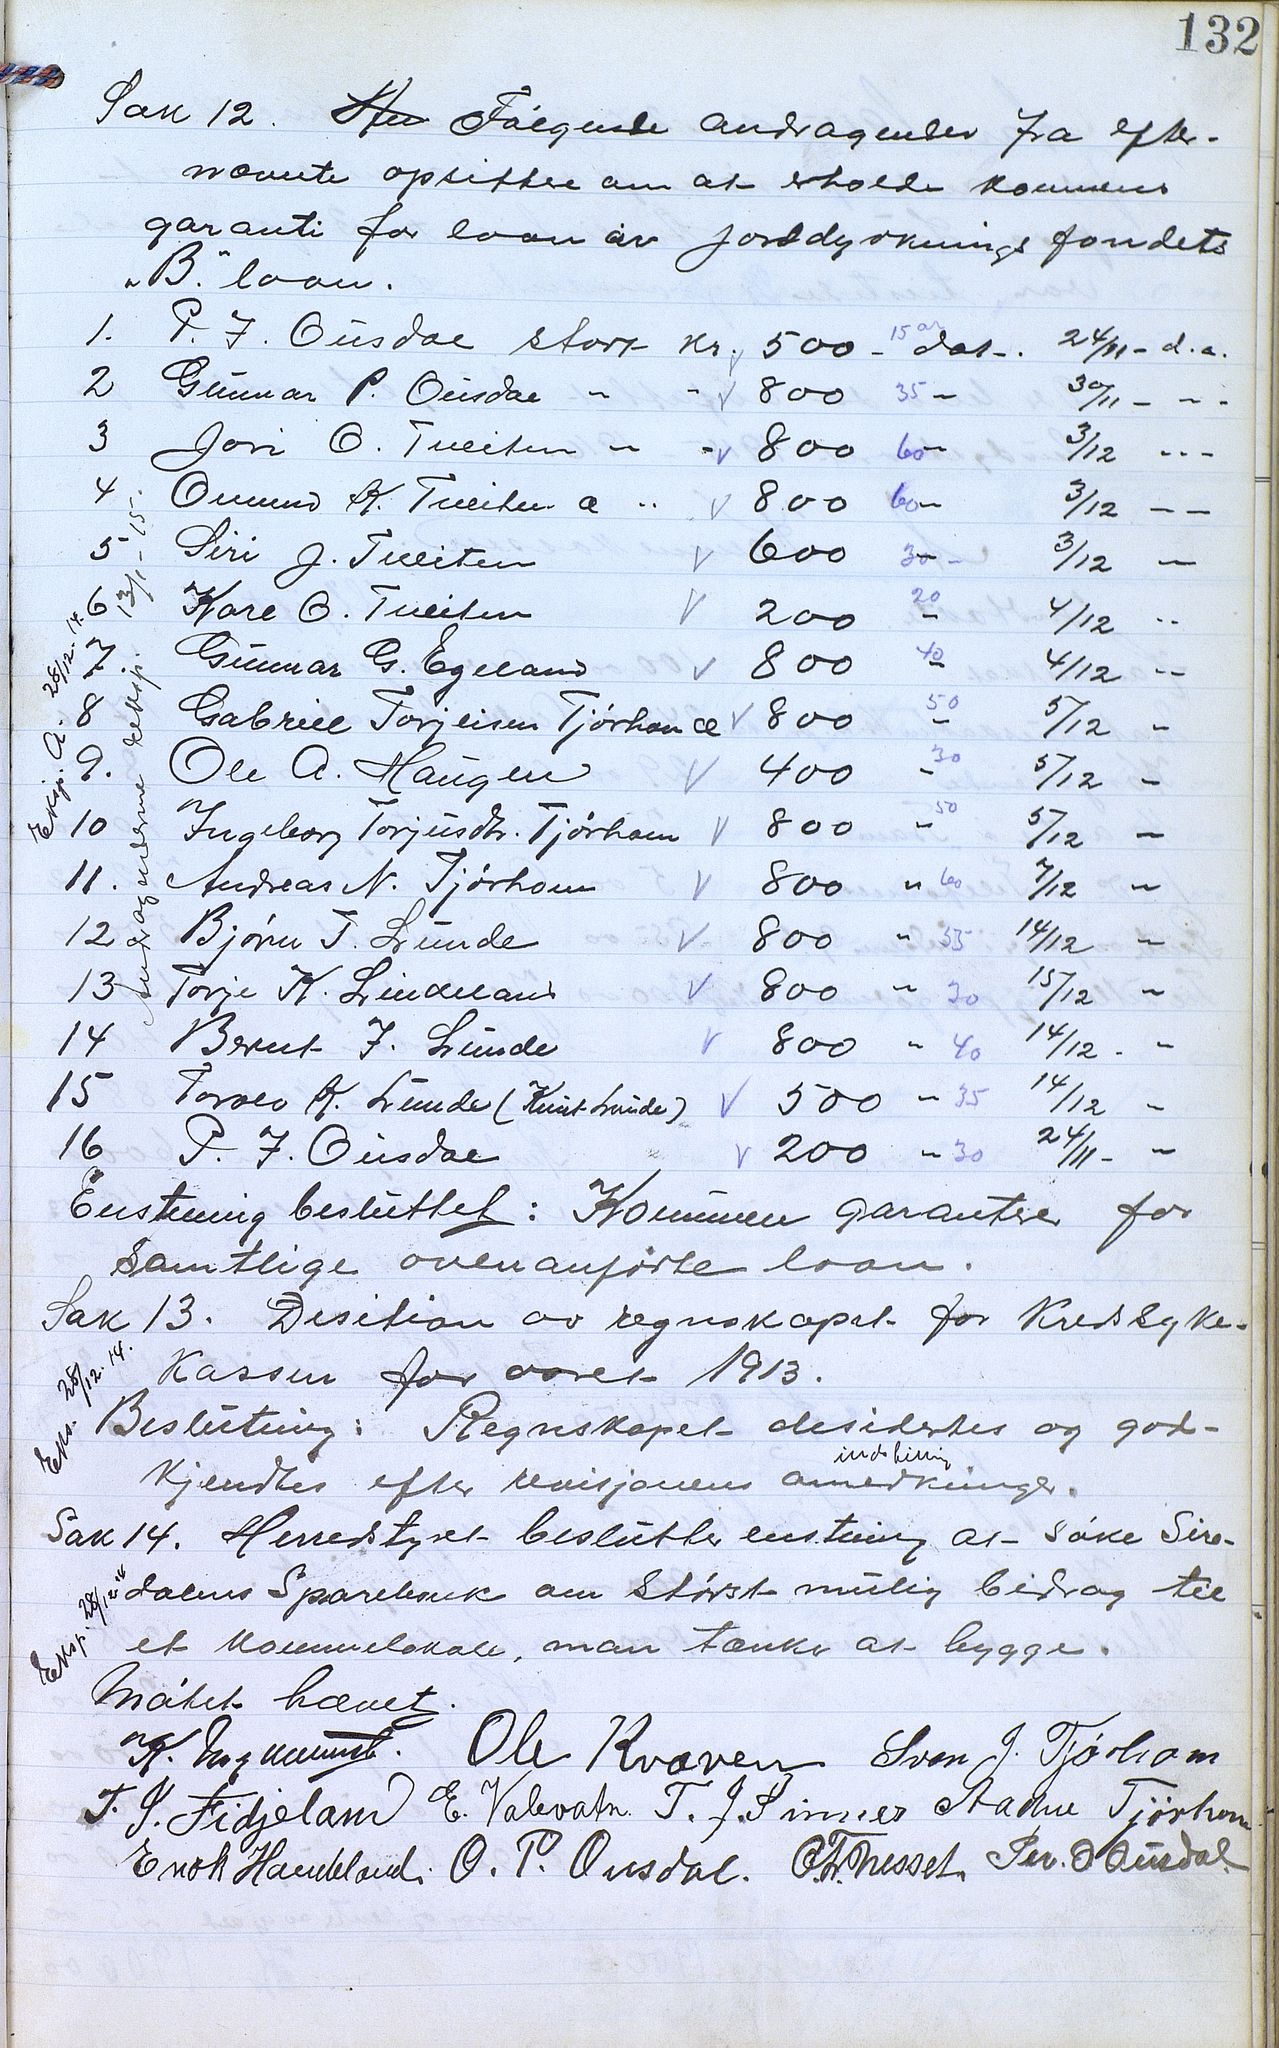 132
Sak 12. Følgende andragender fra efter-
nævnte opsittere om at erholde kommuns
garanti for laan av jorddyrknings fondets
"B." laan.
1. P. F. Ousdal stort kr. 500 - 15 aar dat. 24/11 - d. a.
2 Gunnar P. Ousdal " " 800 35 " 30/11 - " -
3 Jori O. Tveiten " " 800 60 " 3/12 " -
4 Omund K. Tveiten " 800 60 " 3/12 - -
5 Siri J. Tveiten 600 30 " 3/12 "
6 Kare O. Tveiten 200 20 " 4/12 "
7. Gunnar G. Egeland 800 40 " 4/12 "
8 Gabriel Torjeisen Tjørhom 800 50 " 5/12 "
9. Ole A. Haugen 400 " 30 5/12 "
10 Ingeborg Torjusdtr. Tjørhom 800 " 50 5/12 "
11. Andreas N. Tjørhom 800 " 60 7/12 "
12 Bjørn T. Lunde 800 " 35 14/12 "
13 Torje K. Lindeland 800 " 30 15/12 "
14 Bernt F. Lunde 800 " 40 14/12 - "
15 Torlev K. Lunde (Knut Lunde) 500 " 35 14/12 "
16 P. F. Ousdal 200 " 30 24/11 - "
Eksp. A. 28/12. 14.
Andragenderne eksp. 13/1 - 15.
Enstemig besluttet: Kommunen garanterer for
samtlige ovenanførte laan.
Sak 13. Desition av regnskapet for Kredssyke-
kassen for aaret 1913.
Eks. 28/12 14.
Beslutning: Regnskapet desidertes og god-
kjendtes efter revisjonens indstilling
Sak 14. Herredstyret beslutter enstemig at søke Sire-
dalens Sparebank om størst mulig bidrag til
et kommunelokale, man tænker at bygge.
Eksp. 28/12 14
Møtet hævet.
Ole Kvæven Sven J. Tjørhom
T. S. Fidjeland E. Valevatn. T. J. Sinnes Aadne Tjørhom
Enok Handeland. O. P. Ousdal. Tnesset. Per. O Ousdal.